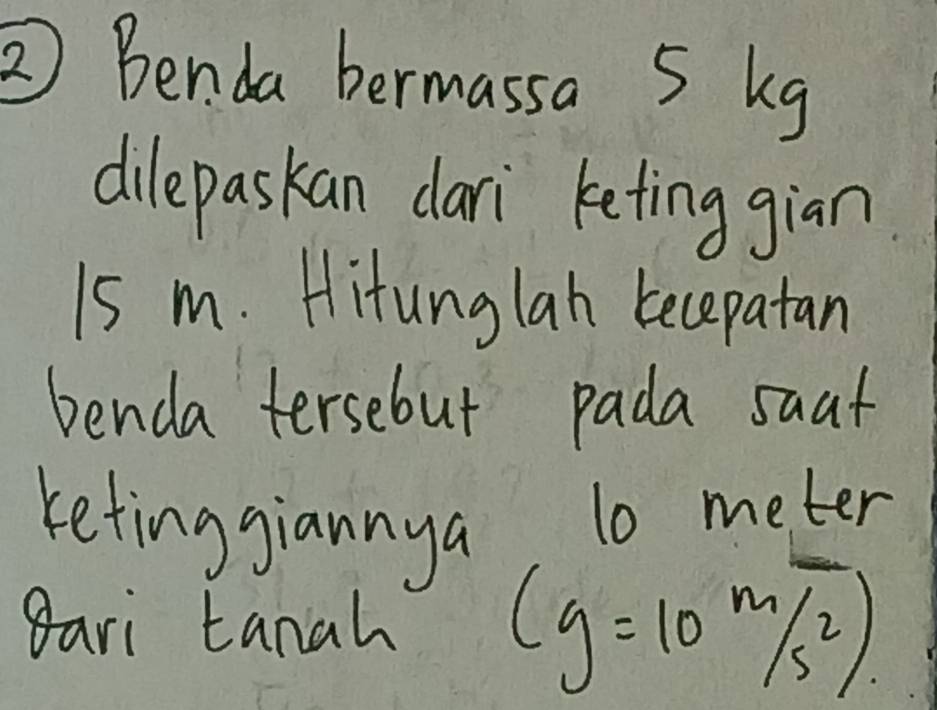 ② Benda bermassa 5 kg
dilepaskan dari ketinggian
15 m. Hitunglah kecepatan
benda tersebut pada saat
ketinggiannya 10 meter
Dari tanah (g = 10 m/s²).